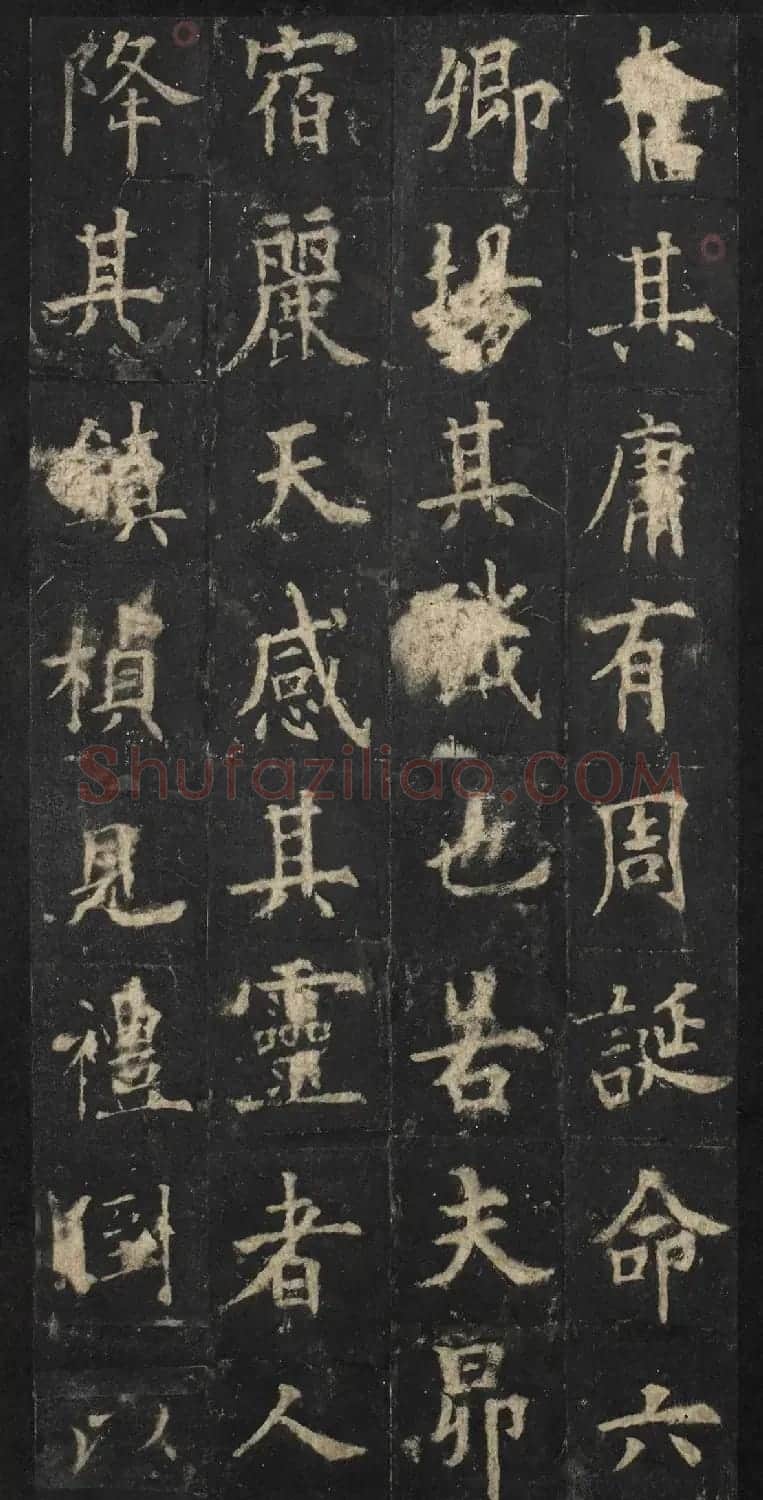 其庸有周誕命六
卿揚其也若夫昴
宿麗天感其靈者人
降其楨見禮以
Shufaziliao.COM